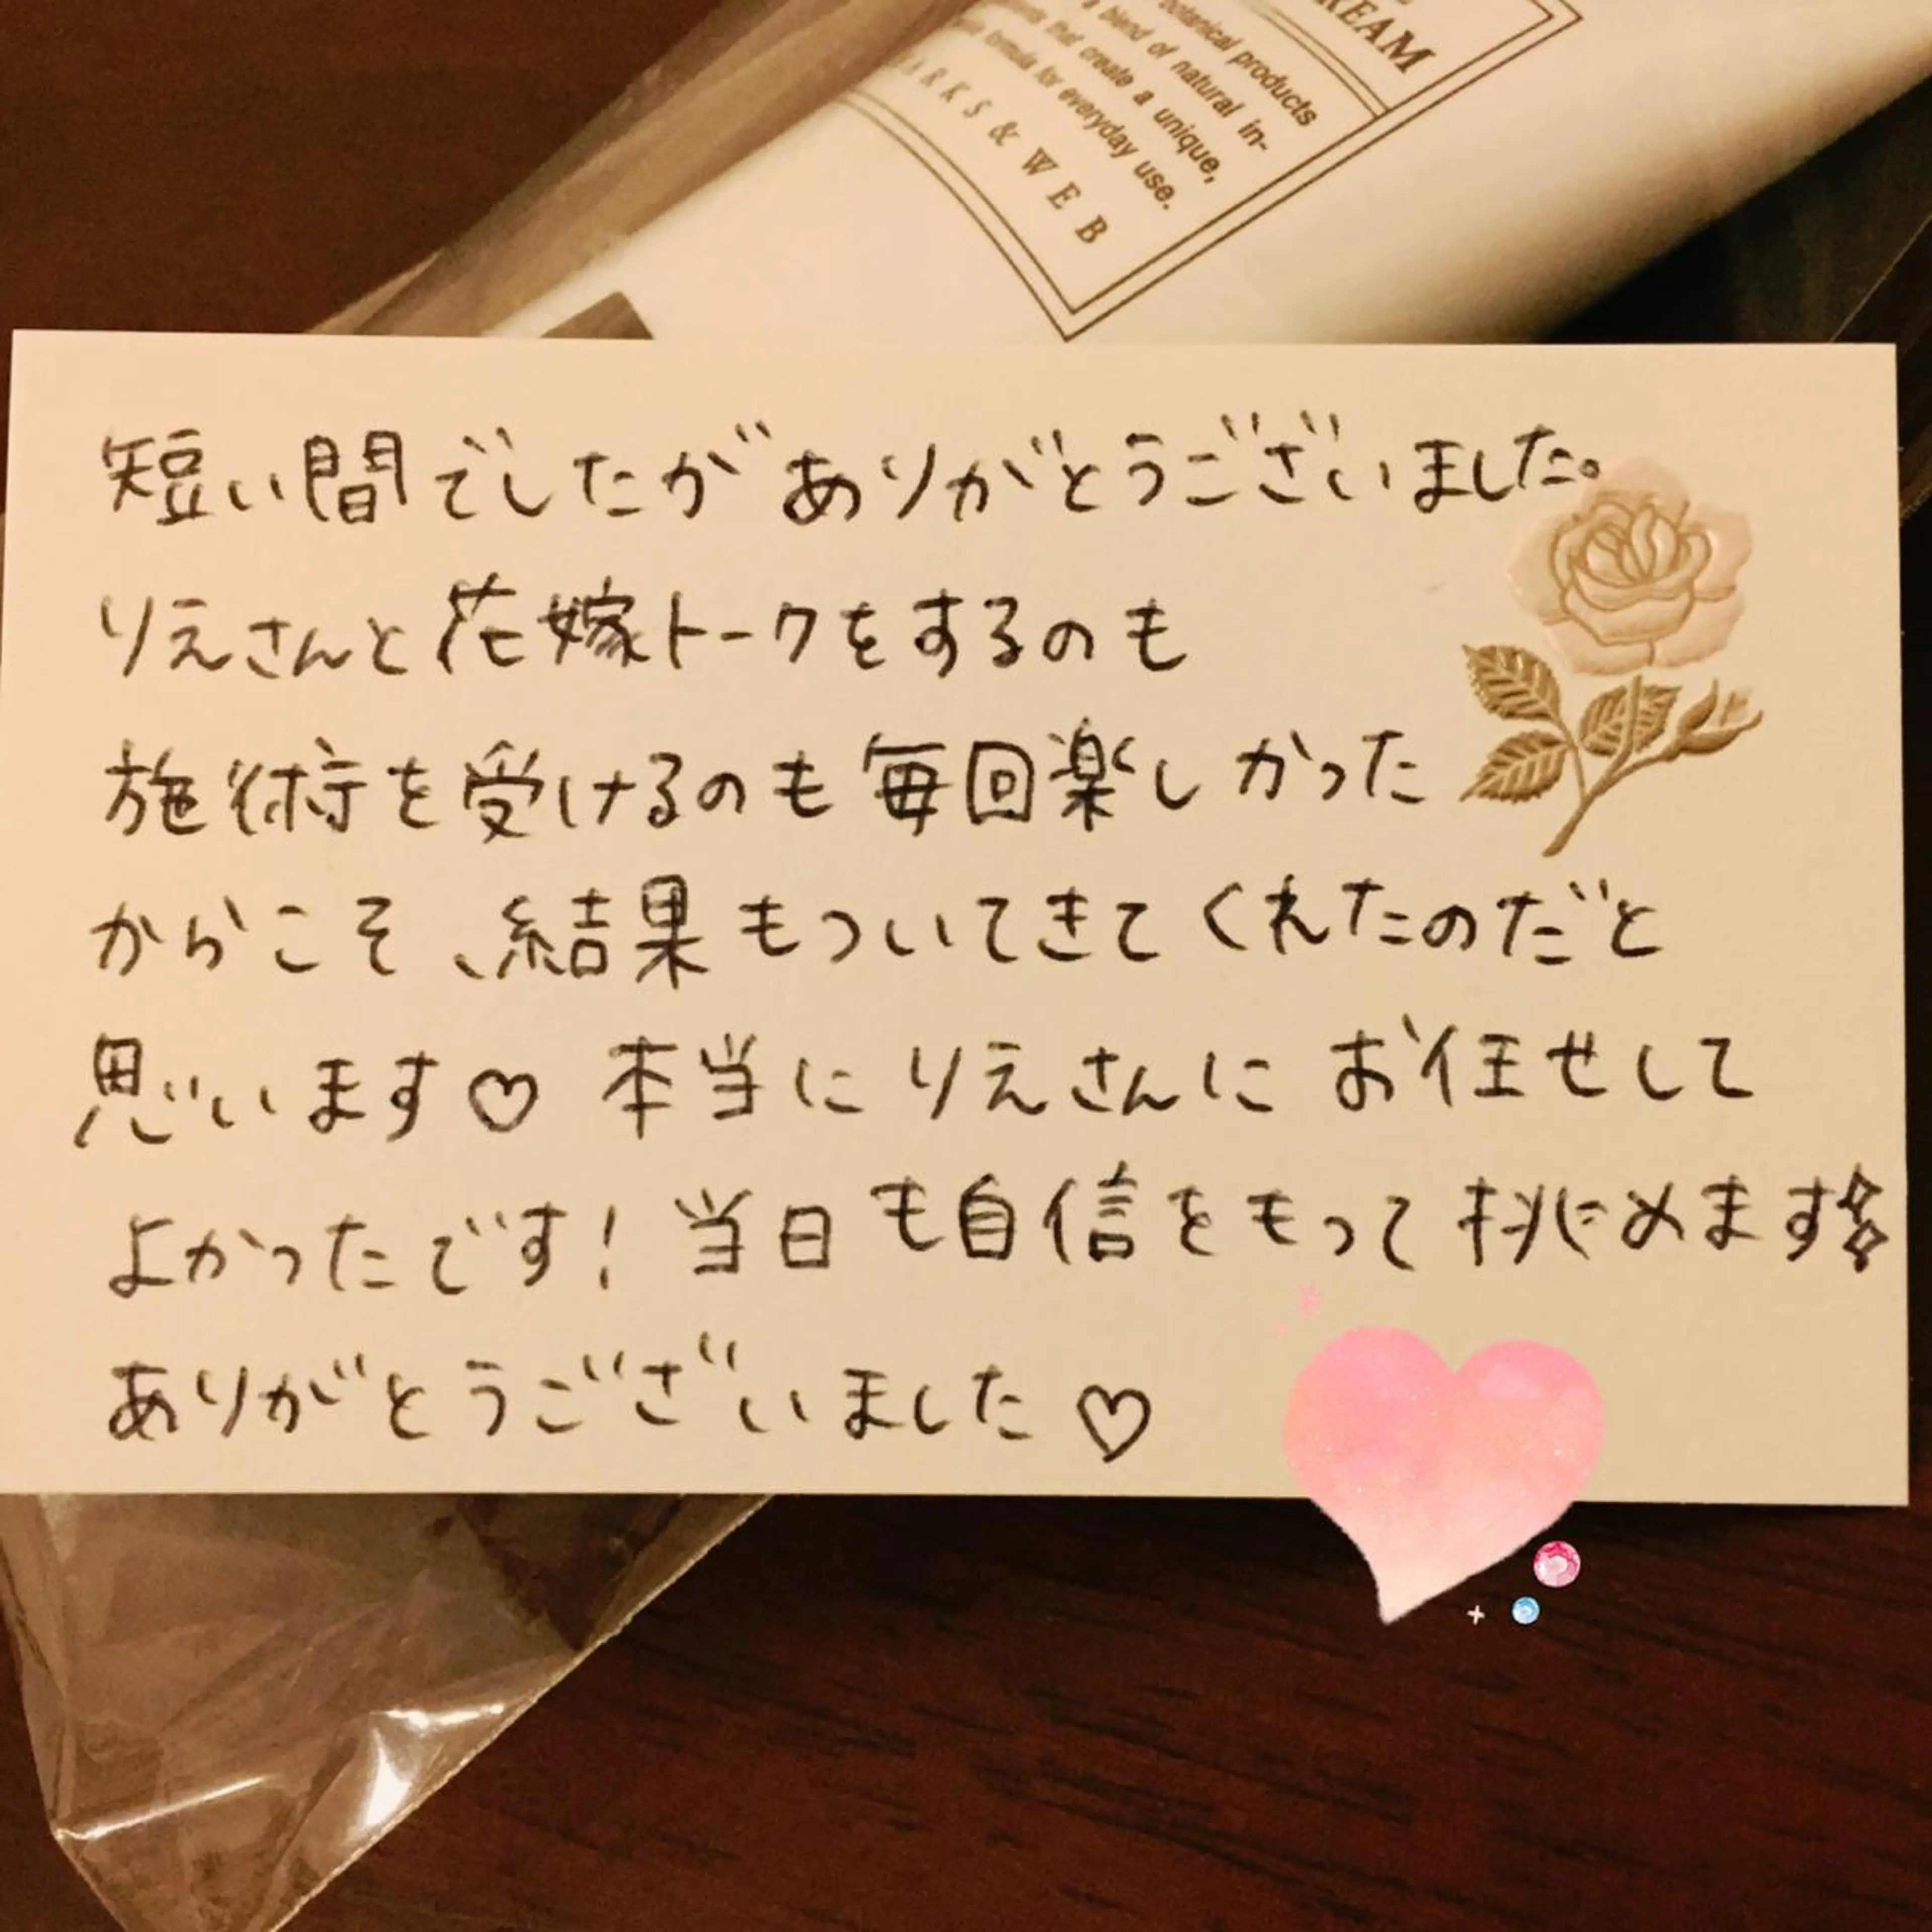 REAM
botanical products
a blend of natural in-
that create a unique,
formula for everyday use.
ARKS & WEB
短い間でしたがありがとうございました。
りえさんと花嫁トークをするのも
施術を受けるのも毎回楽しかった
からこそ、結果もついてきてくれたのだと
思います♡ 本当にりえさんにお任せして
よかったです! 当日も自信をもって挑めます
ありがとうございました♡